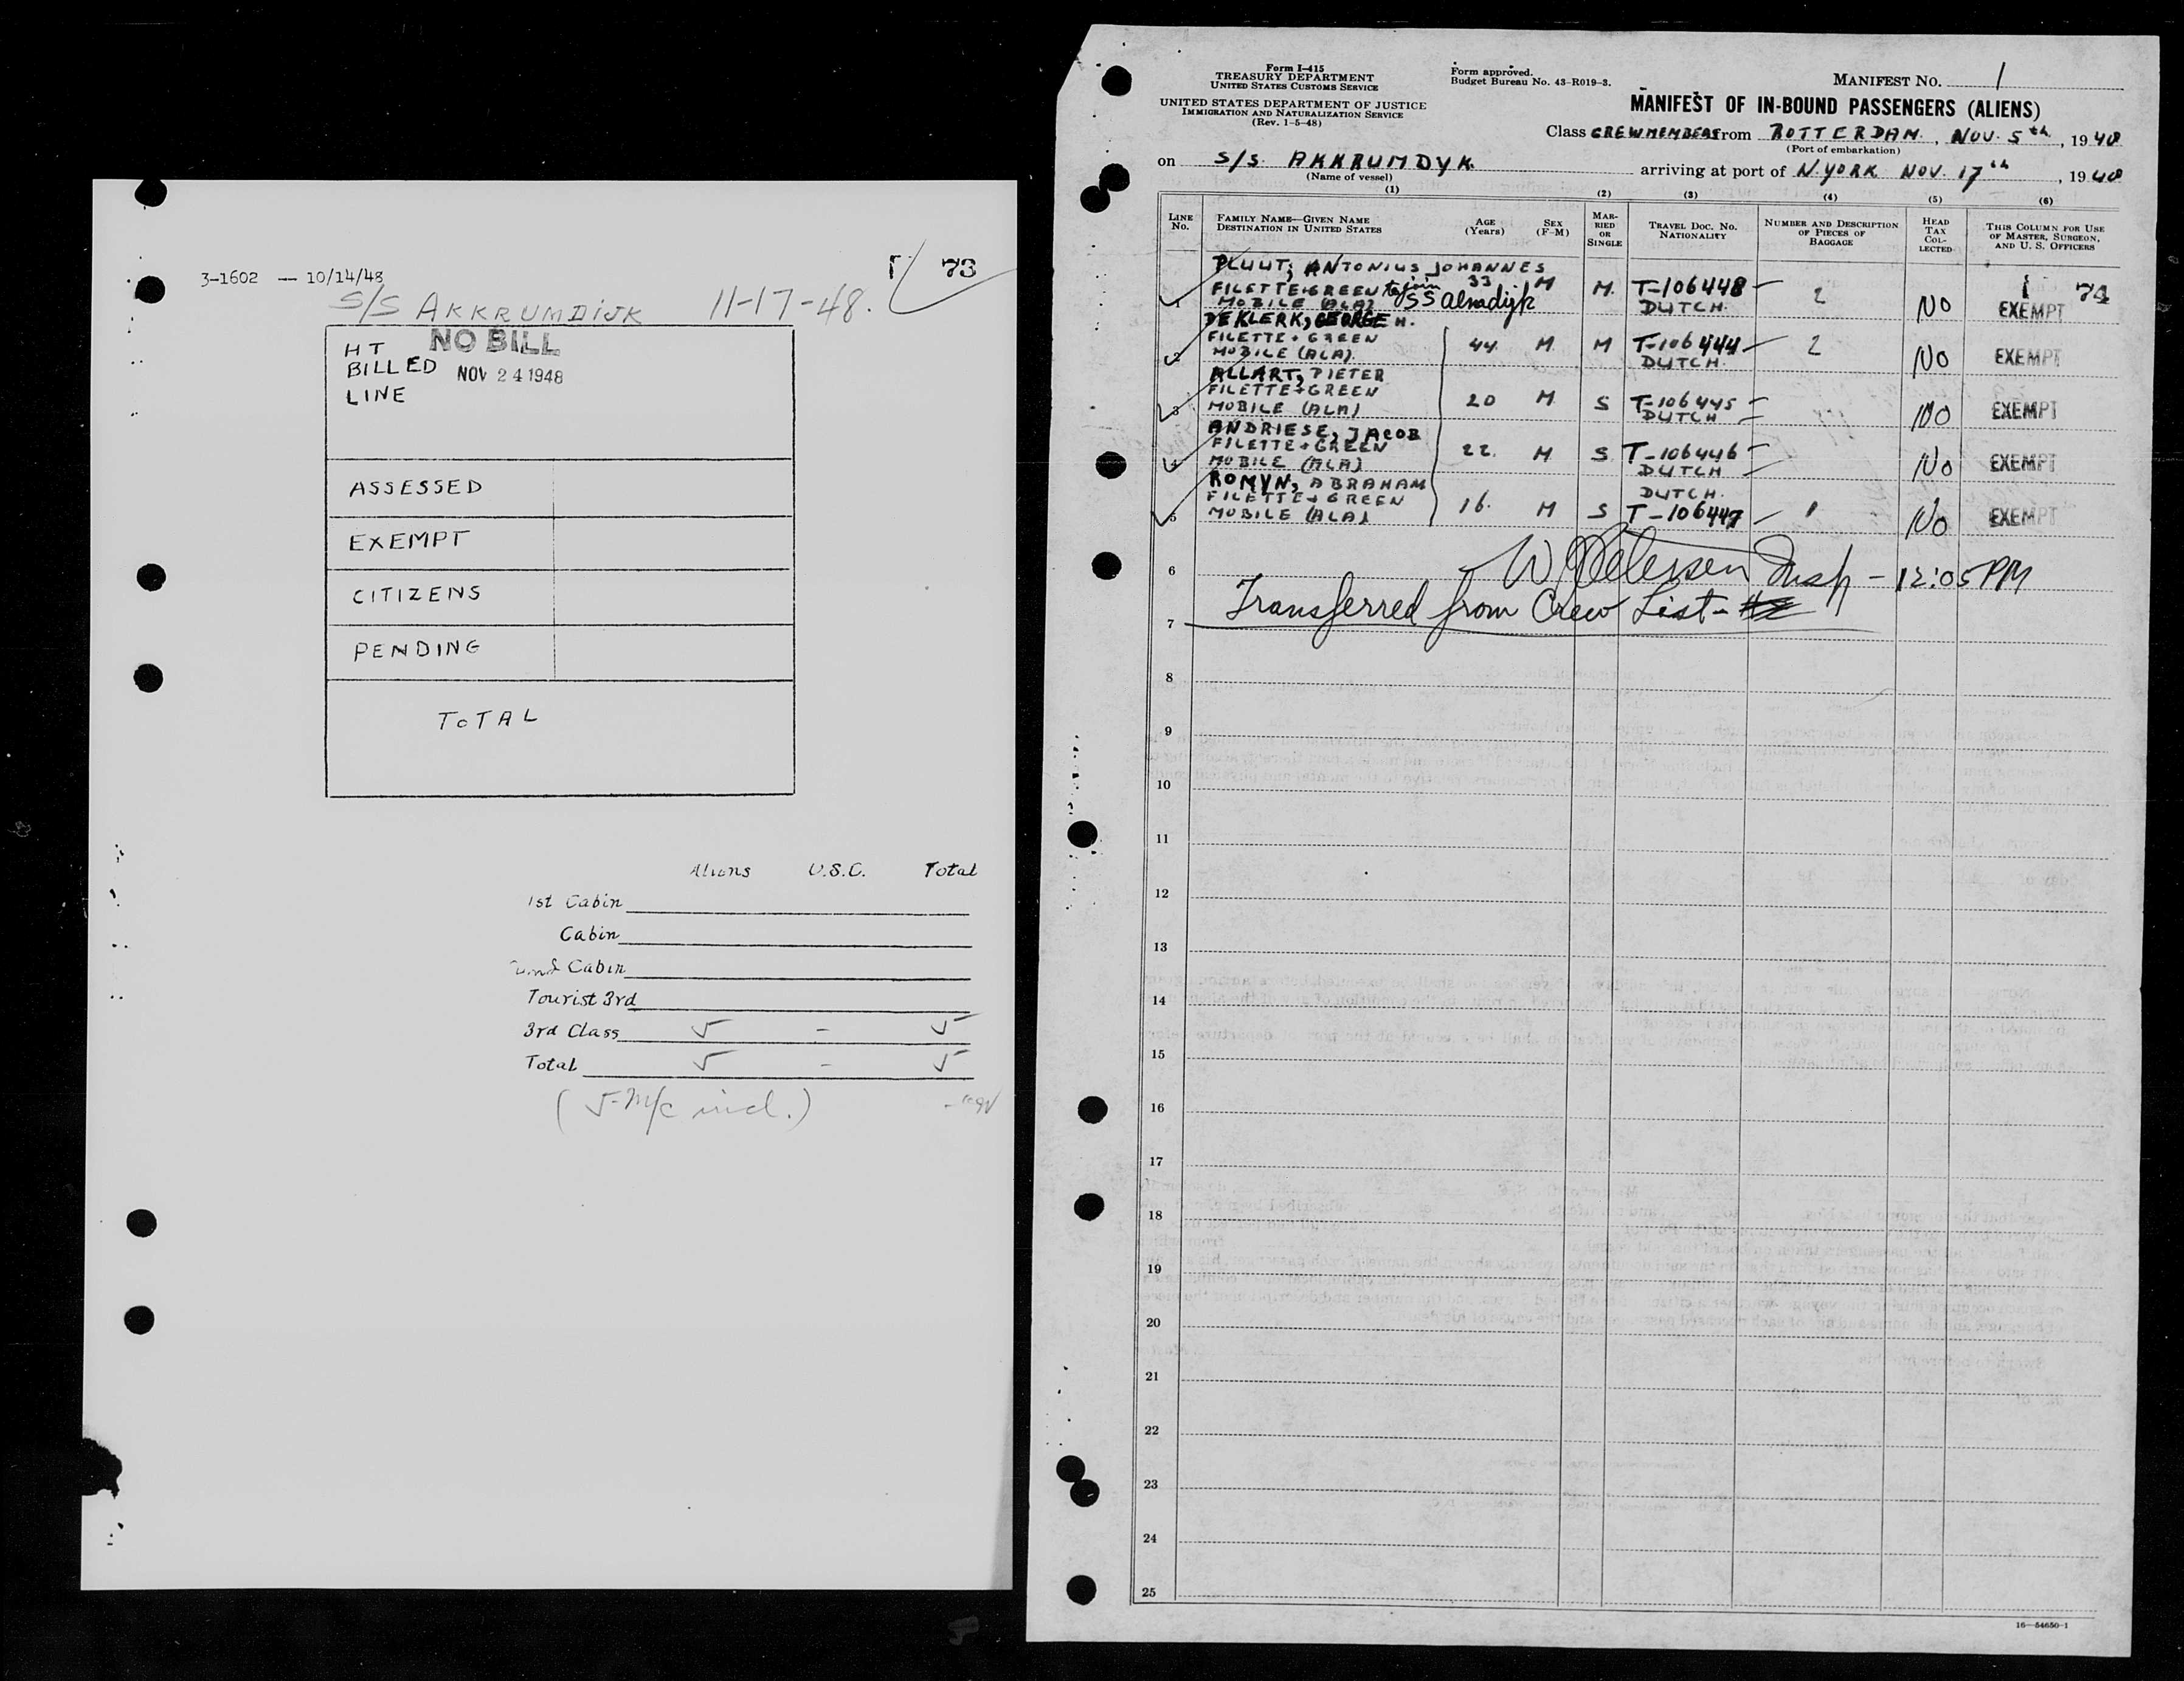 3-1602 — 10/14/48
73
S/S AKKRUMDIJK 11-17-48.
HT
NO BILL
BILLED
NOV 24 1948
LINE
ASSESSED
EXEMPT
CITIZENS
PENDING
TOTAL
Aliens U.S.C. Total
1st Cabin
Cabin
Cabin
Tourist 3rd
3rd Class 5 - 5
Total 5 - 5
(5-M/c incl.)
Form I-415
TREASURY DEPARTMENT
UNITED STATES CUSTOMS SERVICE
UNITED STATES DEPARTMENT OF JUSTICE
IMMIGRATION AND NATURALIZATION SERVICE
(Rev. 1-5-48)
Form approved.
Budget Bureau No. 43-R019-3.
MANIFEST NO. 1
MANIFEST OF IN-BOUND PASSENGERS (ALIENS)
Class CREWMEMBERS from ROTTERDAM, NOV. 5th, 1948
(Port of embarkation)
on S/S. AKKRUMDYK arriving at port of N.YORK NOV. 17th, 1948
(Name of vessel)
(1) (2) (3) (4) (5) (6)
LINE No.
FAMILY NAME—GIVEN NAME
DESTINATION IN UNITED STATES
AGE (Years)
SEX (F-M)
MARRIED OR SINGLE
TRAVEL DOC. NO. NATIONALITY
NUMBER AND DESCRIPTION OF PIECES OF BAGGAGE
HEAD TAX COLLECTED
THIS COLUMN FOR USE OF MASTER, SURGEON, AND U. S. OFFICERS
1 PLUUT, ANTONIUS JOHANNES 33 M M. T-106448 — 2 No 74
FILETTE+GREEN to join
MOBILE (ALA) SS Almdijk DUTCH. EXEMPT
2 DE KLERK, GEORGE H.
FILETTE+GREEN 44 M M T-106444 — 2 No EXEMPT
MOBILE (ALA). DUTCH.
3 ALLART, PIETER
FILETTE+GREEN 20 M S T-106445 — No EXEMPT
MOBILE (ALA) DUTCH —
4 ANDRIESE, JACOB
FILETTE+GREEN 22. M S T-106446 — No EXEMPT
MOBILE (ALA) DUTCH —
5 ROMYN, ABRAHAM
FILETTE+GREEN 16. M S DUTCH. No EXEMPT
MOBILE (ALA) T-106447 — 1
6 W Petersen Insp - 12:05 PM
7 Transferred from Crew List -
8
9
10
11
12
13
14
15
16
17
18
19
20
21
22
23
24
25
16—54650-1